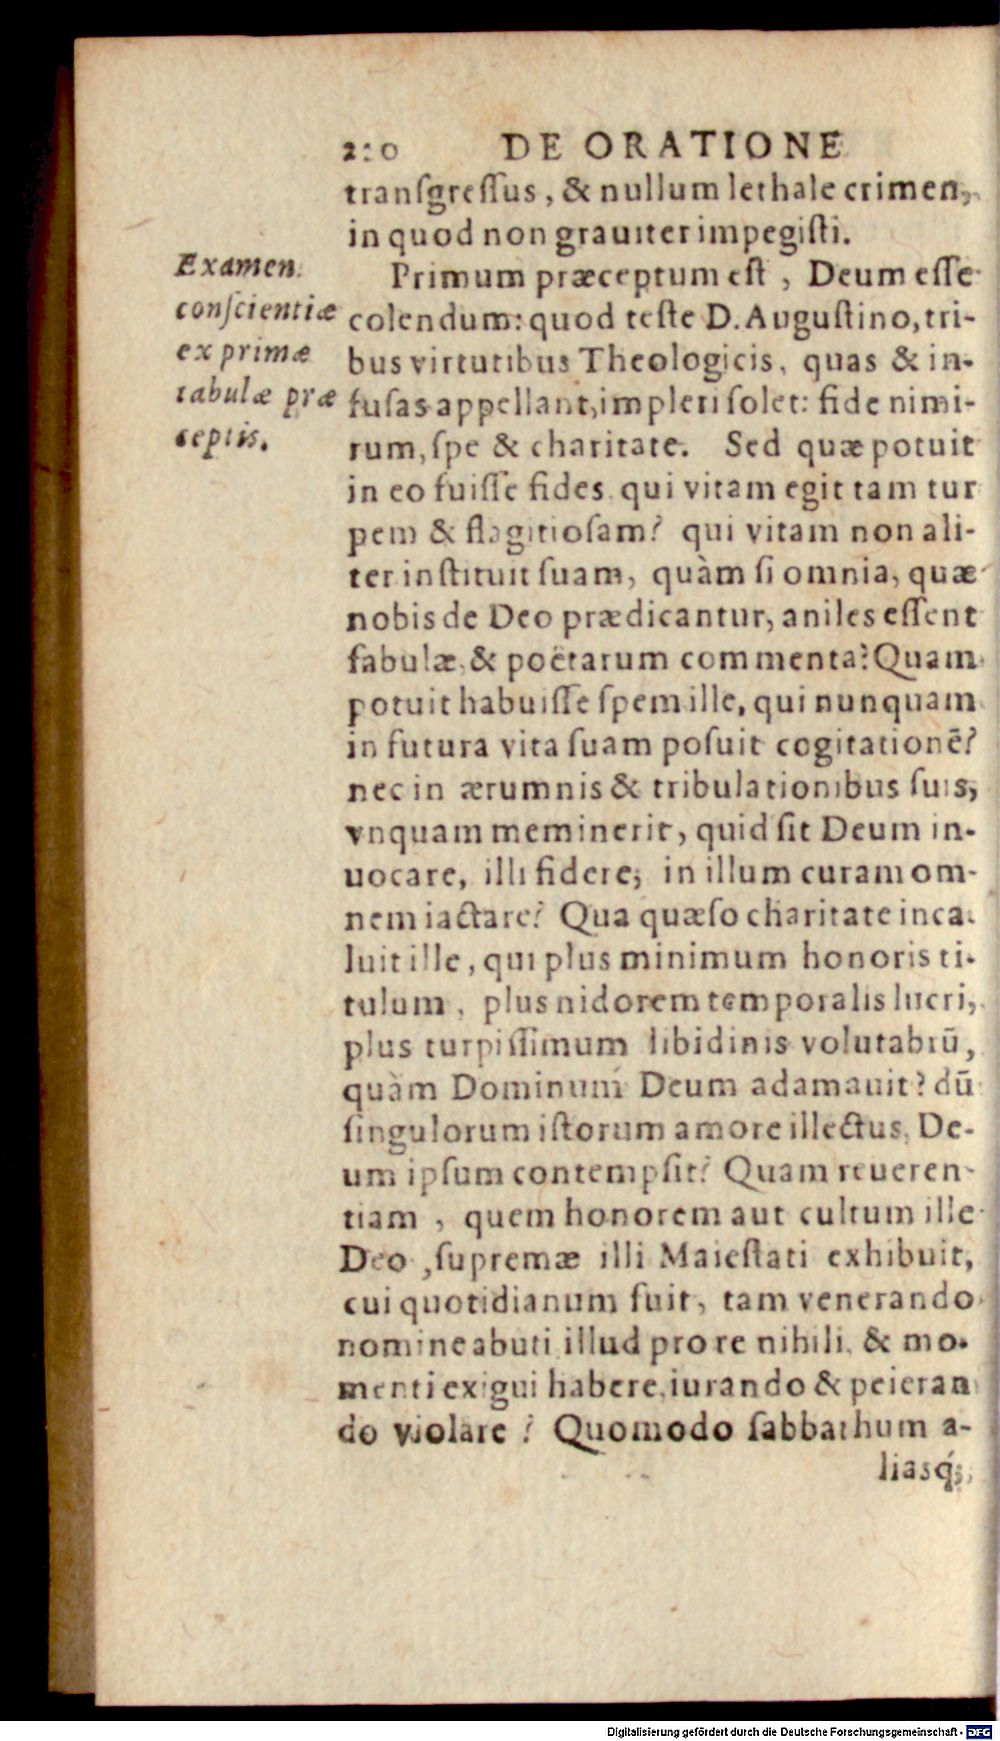 2:0 DE ORATIONE
tranſgreſſus, & nullum lethale crimen,
in quod non grauiter impegiſti.
Examen
conſcientiæ
ex primæ
tabulæ præ
ceptis.
Primum præceptum eſt, Deum eſſe
colendum: quod teſte D. Auguſtino, tri-
bus virtutibus Theologicis, quas & in-
fuſas appellant, impleri ſolet: fide nimi-
rum, ſpe & charitate. Sed quæ potuit
in eo fuiſſe fides qui vitam egit tam tur
pem & flagitioſam? qui vitam non ali-
ter inſtituit ſuam, quàm ſi omnia, quæ
nobis de Deo prædicantur, aniles eſſent
fabulæ & poëtarum commenta? Quam
potuit habuiſſe ſpem ille, qui nunquam
in futura vita ſuam poſuit cogitationē?
nec in ærumnis & tribulationibus ſuis,
vnquam meminerit, quid ſit Deum in-
uocare, illi fidere, in illum curam om-
nem iactare? Qua quæſo charitate inca-
luit ille, qui plus minimum honoris ti-
tulum, plus nidorem temporalis lucri,
plus turpiſſimum libidinis volutabrū,
quàm Dominum Deum adamauit? dū
ſingulorum iſtorum amore illectus, De-
um ipſum contempſit? Quam reueren-
tiam, quem honorem aut cultum ille
Deo, ſupremæ illi Maieſtati exhibuit,
cui quotidianum fuit, tam venerando
nomine abuti illud pro re nihili & mo-
menti exigui habere, iurando & peieran
do violare? Quomodo ſabbathum a-
liasq́;
Digitalisierung gefördert durch die Deutsche Forschungsgemeinschaft - DFG